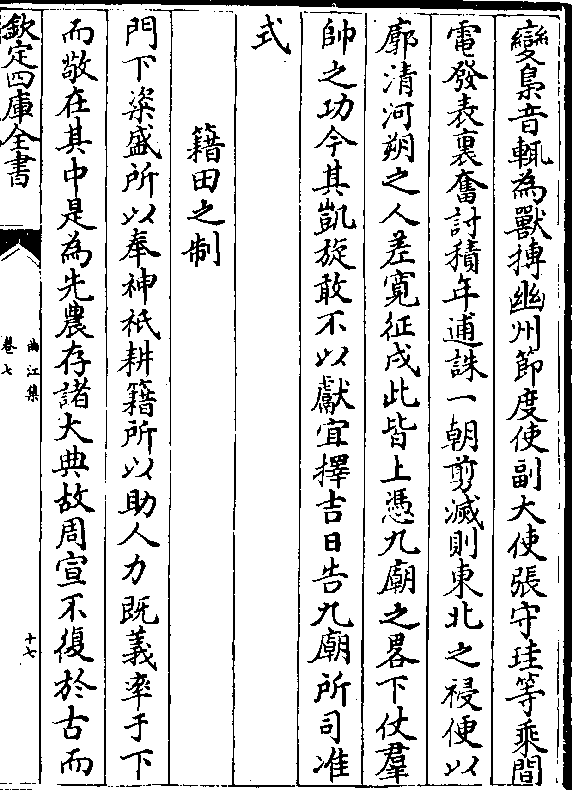 變梟音輒為獸摶幽州節度使副大使張守珪等乘間
電發表裏奮討積年逋誅一朝剪滅則東北之祲便以
廓清河朔之人差寛征戍此皆上憑九廟之畧下仗羣
帥之功今其凱旋敢不以獻宜擇吉日告九廟所司准
式
籍田之制
門下粢盛所以奉神祇耕籍所以助人力既義率于下
而敬在其中是為先農存諸大典故周宣不復於古而
欽定四庫全書
曲江集
卷七
十七